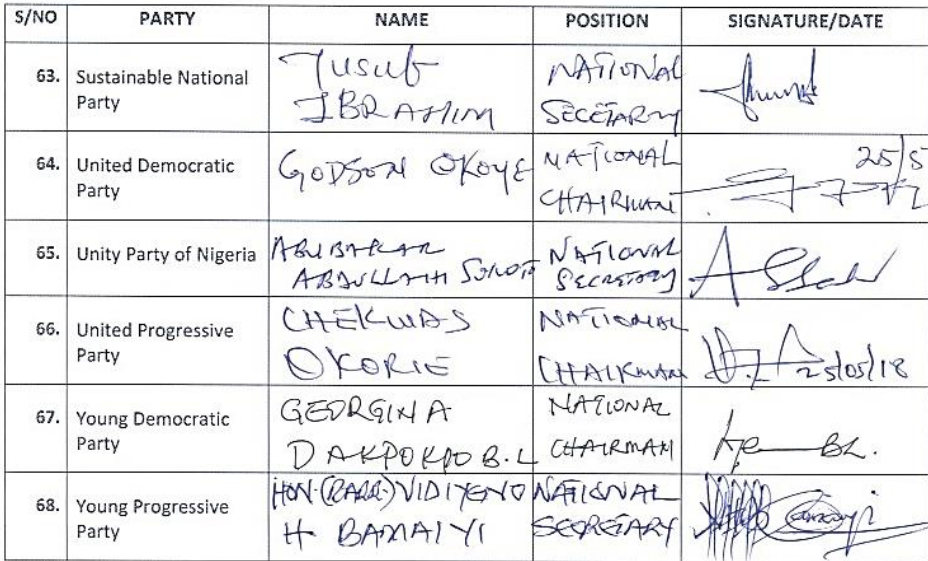 S/NO PARTY NAME POSITION SIGNATURE/DATE
63. Sustainable National Party
Yusuf
IBRAHIM
NATIONAL
SECETARY
64. United Democratic
Party
GODSON OKOYE
NATIONAL
CHAIRMAN
25/5
65. Unity Party of Nigeria
ABUBAKAR
ABDULLAHI
NATIONAL
SECRETARY
66. United Progressive
Party
CHEKWAS
OKORIE
NATIONAL
CHAIRMAN
25/05/18
67. Young Democratic
Party
GEORGINA
DAKPOKPO B.L
NATIONAL
CHAIRMAN
BL.
68. Young Progressive
Party
HON. (BARR.) VIDIYENO
H BAMAIYI
NATIONAL
SECRETARY